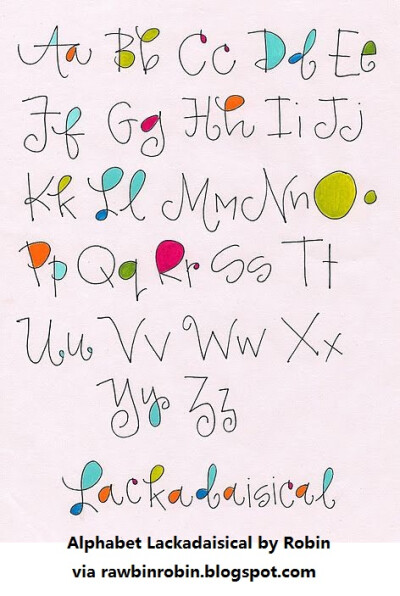 Aa Bb Cc Dd Ee
Ff Gg Hh Ii Jj
Kk Ll Mm Nn Oo
Pp Qq Rr Ss Tt
Uu Vv Ww Xx
Yy Zz
Lackadaisical
Alphabet Lackadaisical by Robin
via rawbinrobin.blogspot.com